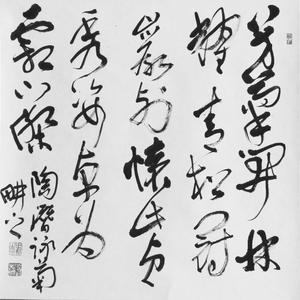 芳菊開林
耀青松冠
巖列懷此貞
秀姿卓為
霜下傑
陶潛詠菊